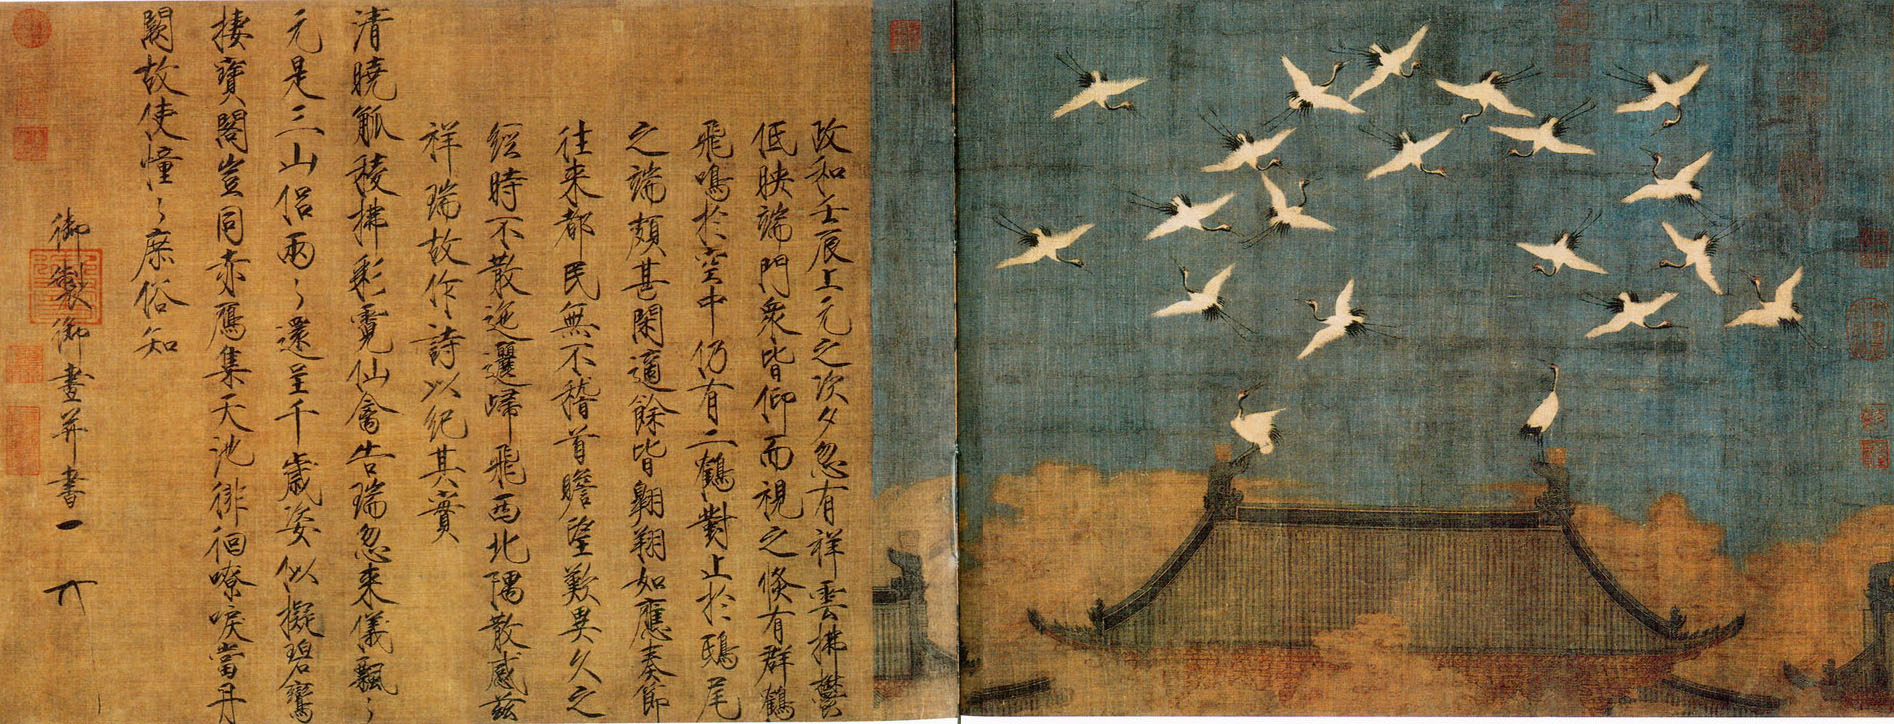 政和壬辰上元之次夕忽有祥雲拂鬱
低映端門衆皆仰而視之倐有群鶴
飛鳴於空中仍有二鶴對止於鴟尾
之端頗甚閑適餘皆翱翔如應奏節
往来都民無不稽首瞻望歎異久之
經時不散迤邐歸飛西北隅散感兹
祥瑞故作詩以紀其實
清曉觚稜拂彩霓仙禽告瑞忽来儀飄〻
元是三山侣兩〻還呈千歲姿似擬碧鸞
棲寶閣豈同赤鴈集天池徘徊嘹唳當丹
闕故使憧〻庶俗知
御製御畫并書